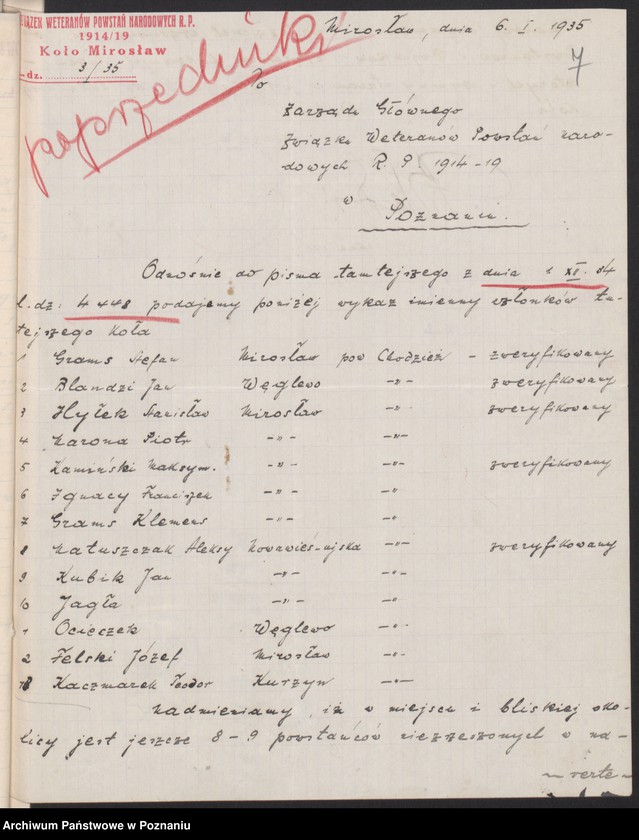 IĄZEK WETERANÓW POWSTAŃ NARODOWYCH R. P.
1914/19
Koło Mirosław
-dz. 3/35
Mirosław, dnia 6. I. 1935
7
poprzednik
Do
Zarządu Głównego
Związku Weteranów Powstań naro-
dowych R. P. 1914-19
w
Poznaniu.
Odnośnie do pisma tamtejszego z dnia 1 XI. 34
l. dz: 4448 podajemy poniżej wykaz imienny członków tu-
tejszego Koła
1 Grams Stefan Mirosław pow Chodzież - zweryfikowany
2 Blandzi Jan Węglewo -"- zweryfikowany
3 Hyłek Stanisław Mirosław -"- zweryfikowany
4 Marona Piotr -"- -"-
5 Kamiński Maksym. -"- -"- zweryfikowany
6 Ignacy Franciszek -"- -"-
7 Grams Klemens -"- -"-
8 Matuszczak Aleksy Nowawieś-ujska -"- zweryfikowany
9 Kubik Jan -"- -"-
10 Jagła -"- -"-
1 Ocieczek Węglewo -"-
2 Felski Józef Mirosław -"-
13 Kaczmarek Teodor Kurzyn -"-
Nadmieniamy, iż w miejscu i bliskiej oko-
licy jest jeszcze 8-9 powstańców niezrzeszonych w na-
-verte-
Archiwum Państwowe w Poznaniu